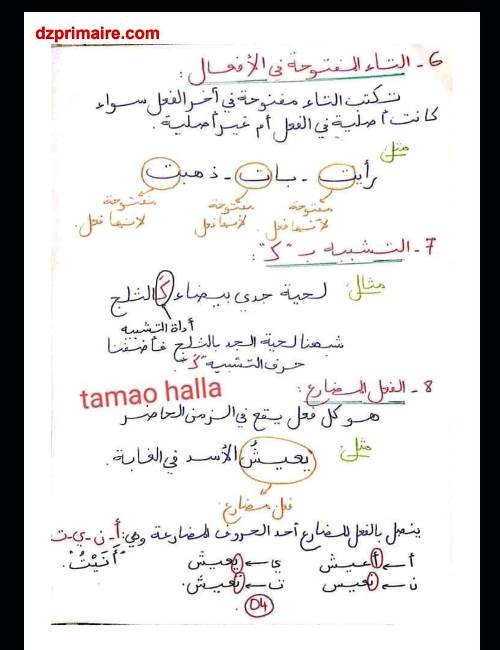 dzprimaire.com
6 - التاء المفتوحة في الأفعال :
تكتب التاء مفتوحة في آخر الفعل سواء
كانت أصلية في الفعل أم غير أصلية .
مثل
رأيت - بات - ذهبت
مفتوحة لأنها فعل مفتوحة لأنها فعل مفتوحة لأنها فعل .
7 - التشبيه بـ "كـ" :
مثال : لحية جدي بيضاء كالثلج
أداة التشبيه
شبهنا لحية الجد بالثلج فأضفنا
حرف التشبيه "كـ" .
tamao halla
8 - الفعل المضارع :
هو كل فعل يقع في الزمن الحاضر
مثل : يعيشُ الأسد في الغابة .
فعل مضارع
يتصل بالفعل المضارع أحد الحروف المضارعة وهي: أ - ن - ي - ت
أ ← أعيش ي ← يعيش "أَنَيْتُ" .
ن ← نعيش ت ← تعيش .
04